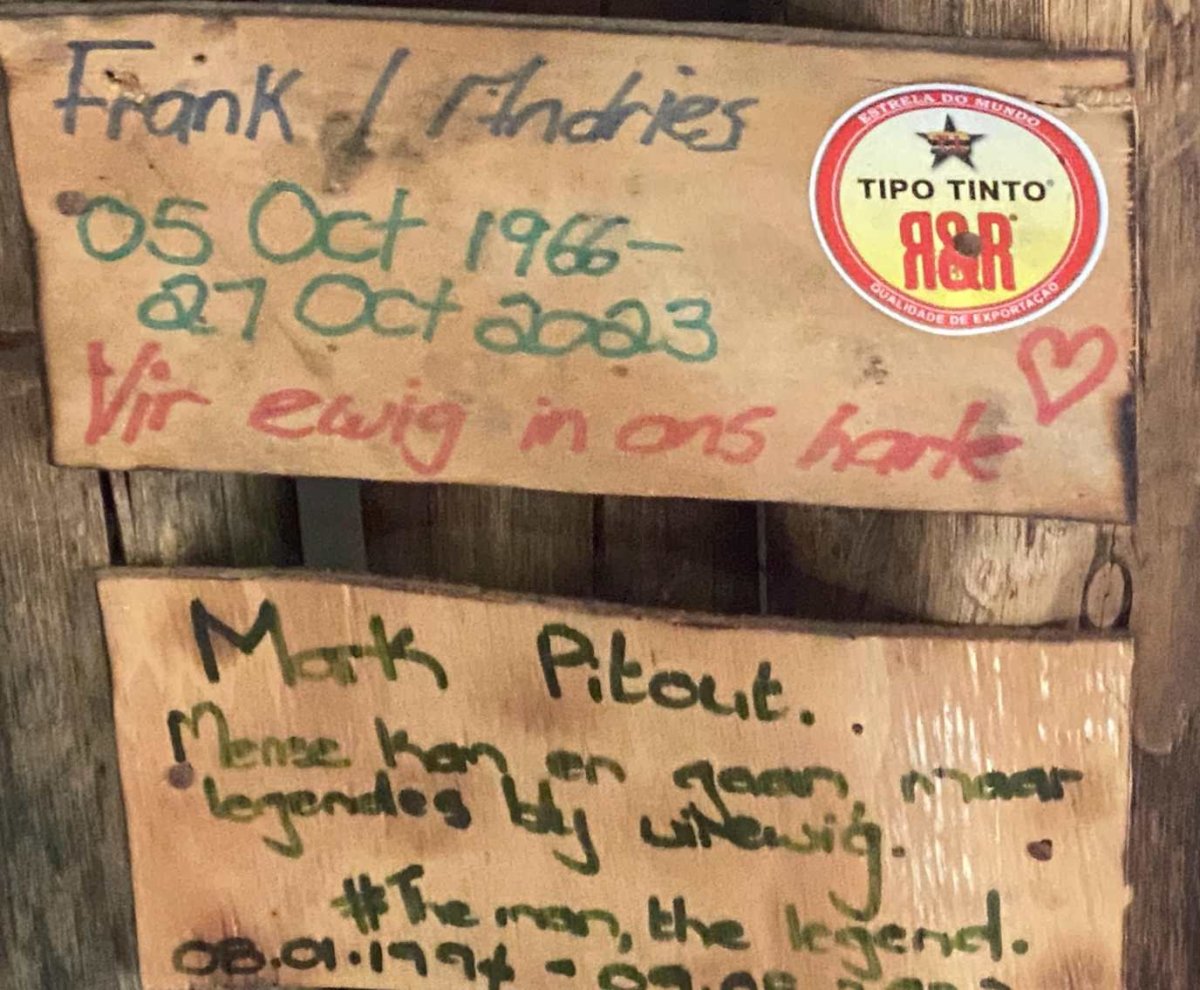 Frank / Andries
05 Oct 1966 -
27 Oct 2023
Vir ewig in ons harte
ESTRELA DO MUNDO
TIPO TINTO®
R&R®
QUALIDADE DE EXPORTAÇÃO
Mark Pitout.
Mense kom en gaan, maar
legendes bly vir ewig.
#The man, the legend.
08.01.1994 -